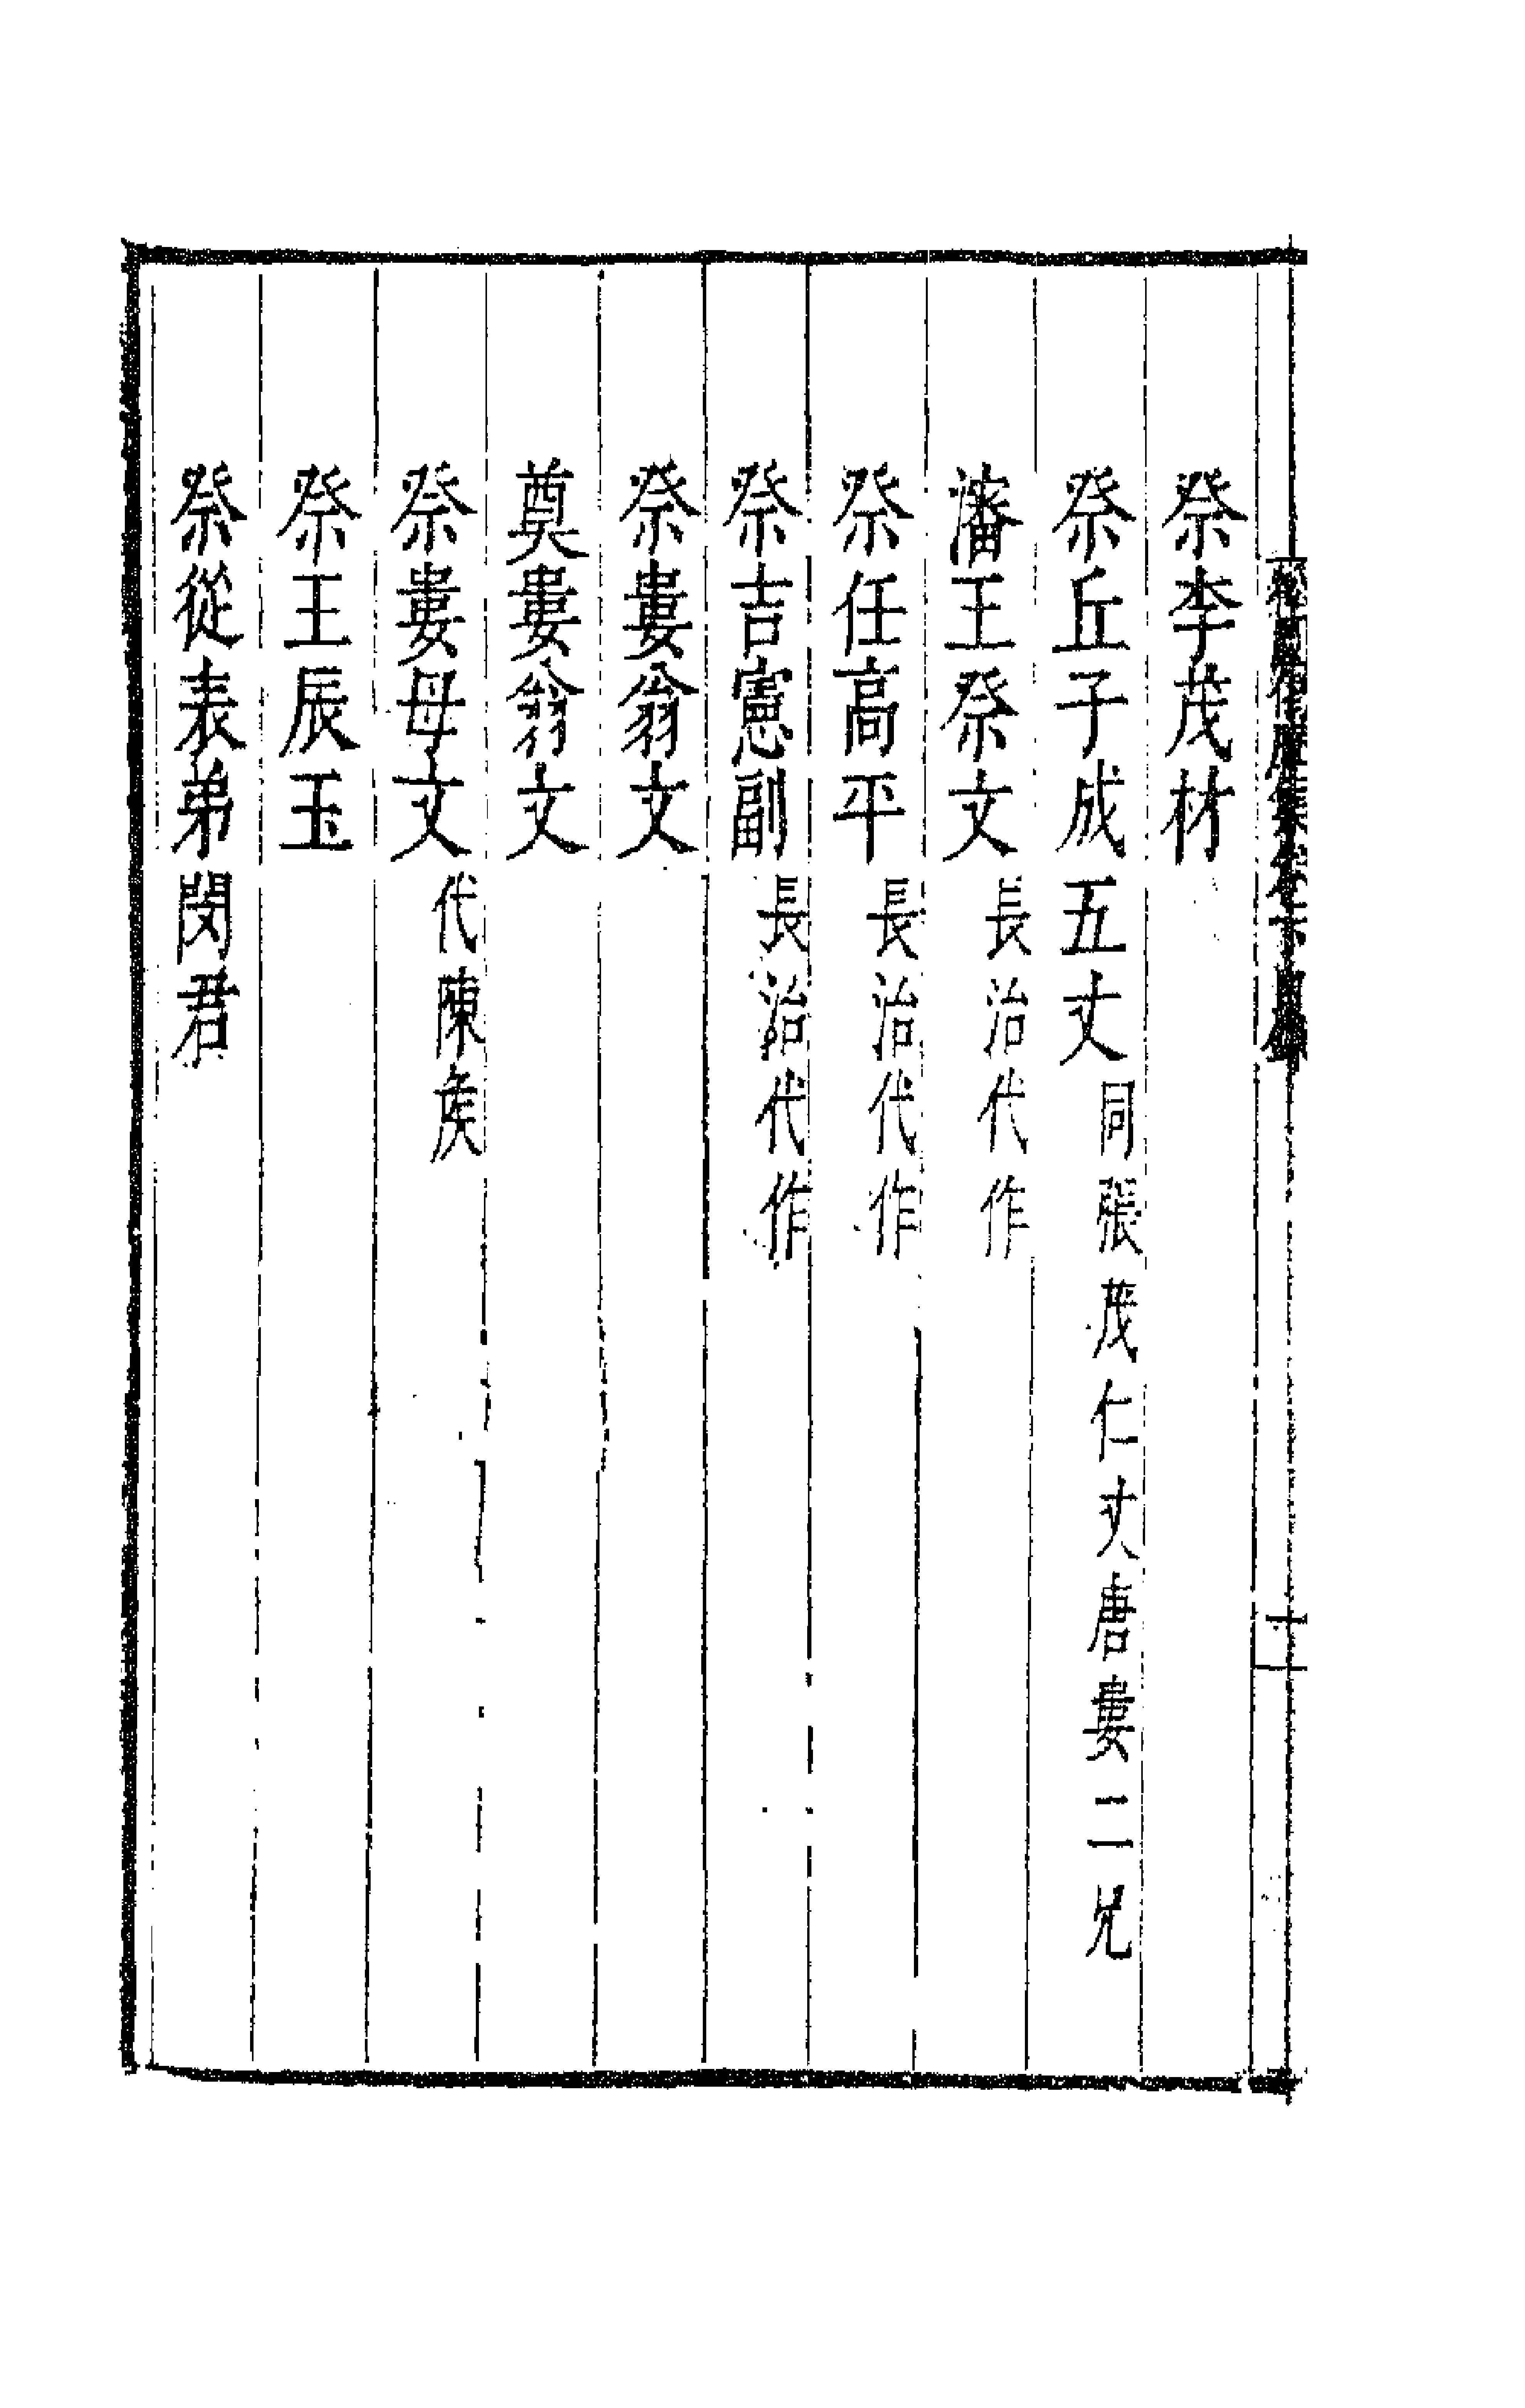 祭李茂材
祭丘子成五丈同張茂仁丈唐婁二兄
瀋王祭文長治代作
祭任高平長治代作
祭吉憲副長治代作
祭婁翁文
奠婁翁文
祭婁母文代陳矦
祭王辰玉
祭從表弟閔君